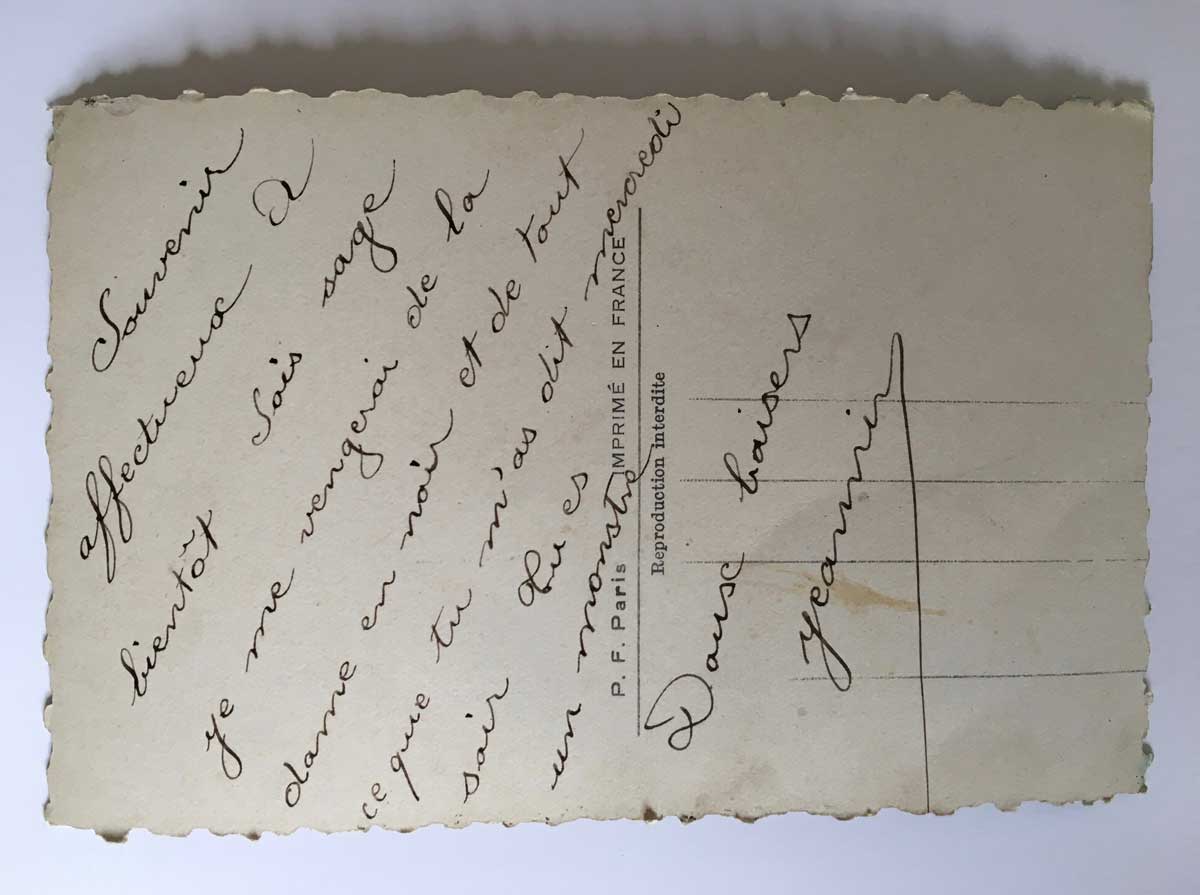 Souvenir
affectueux à
bientôt Sois sage
Je me vengerai de la
dame en noir et de tout
ce que tu m'as dit mercredi
soir Tu es
un monstre
P. F. Paris IMPRIMÉ EN FRANCE
Reproduction interdite
Doux baisers